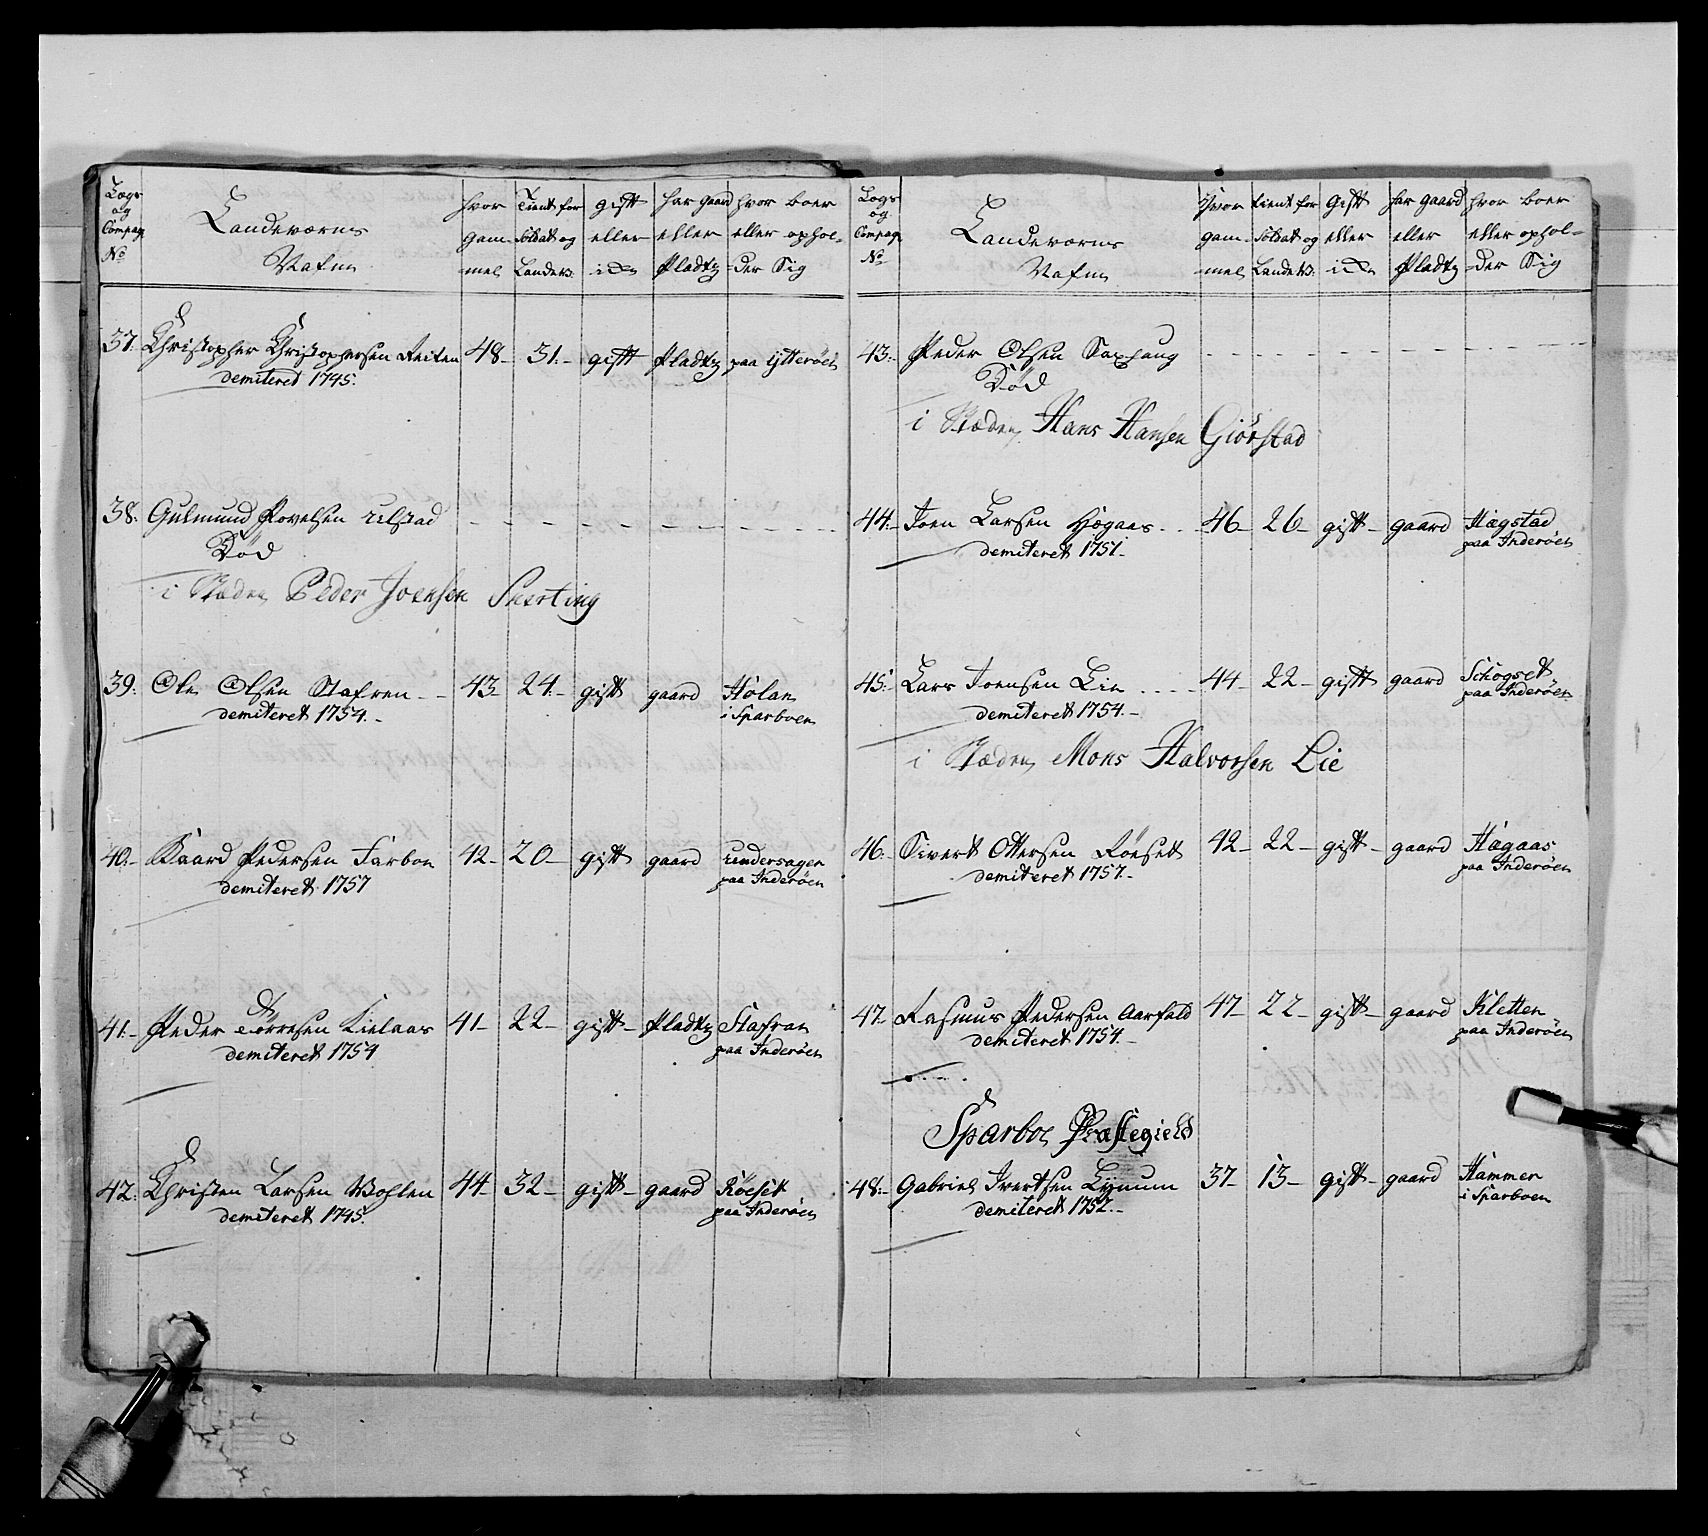 Lægs og Compag No
Landeværns Nafne
hvor gammel
Tient for Soldat og Landev:
gift eller ide
har gaard eller Pladtz
hvor boer eller opholder Sig
37. Christopher Christophersen Reiten 48- 31.- gift Pladtz paa Ytterøen
demiteret 1745.
38. Gulmund Povelsen Ulstad
Død
i Stæden Peder Joensen Snerting
39. Ole Olsen Stafren 43- 24- gift gaard Holan
demiteret 1754.- i Sparboen
40.- Baard Pedersen Farbon 42- 20- gift gaard Undersager
demiteret 1757 paa Inderøen
41.- Peder Torresen Kielaas 41- 22- gift- Pladtz Stafran
demiteret 1754 paa Inderøen
42. Christen Larsen Vohlen 44- 32- gift- gaard Røeset
demiteret 1745. paa Inderøen
Lægs og Compag No
Landeværns Nafne
hvor gammel
tient for Soldat og Landev:
gift eller ide
har gaard eller Pladtz
hvor boer eller opholder Sig
43.- Peder Olsen Saxhaug
Død
i Stæden Hans Hansen Giørstad
44.- Joen Larsen Hægaas 46- 26- gift- gaard Hagstad
demiteret 1751.- paa Inderøen
45.- Lars Joensen Lie 44- 22- gift gaard Schogset
demiteret 1754.- paa Inderøen
i Stæden Mons Halvorsen Lie
46.- Sivert Ottersen Røeset 42- 22- gift- gaard Hagaas
demiteret 1757.- paa Inderøen
47.- Rasmus Pedersen Aarfald 47- 22- gift- gaard Kletten
demiteret 1754.- paa Inderøen
Sparboe Præstegield
48.- Gabriel Ivertsen Lynum 37- 13- gift- gaard Hammer
demiteret 1752.- i Sparboen